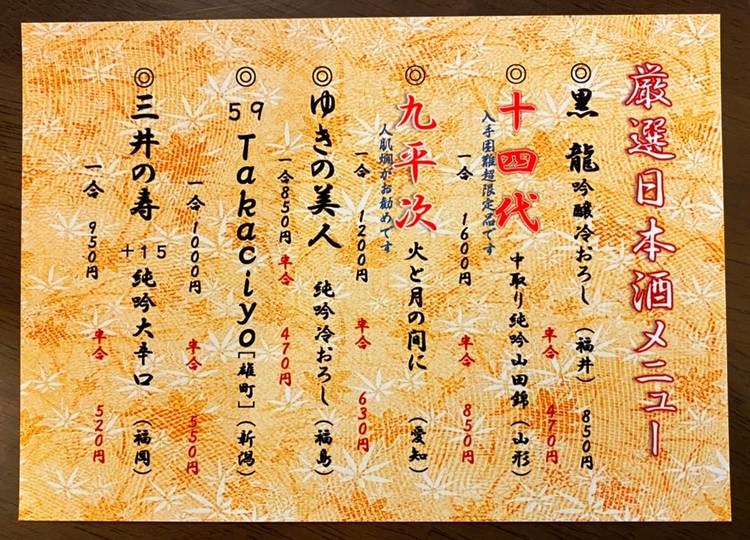 厳選日本酒メニュー
◎黒龍吟醸冷おろし（福井）850円
半合 470円
◎十四代 中取り純吟山田錦（山形）
入手困難超限定品です
一合 1600円 半合 850円
◎九平次 火と月の間に（愛知）
人肌燗がお勧めです
一合 1200円 半合 630円
◎ゆきの美人 純吟冷おろし（福島）
一合850円 半合 470円
◎59Takaciyo［雄町］（新潟）
一合 1000円 半合 550円
◎三井の寿 +15純吟大辛口（福岡）
一合 950円 半合 520円